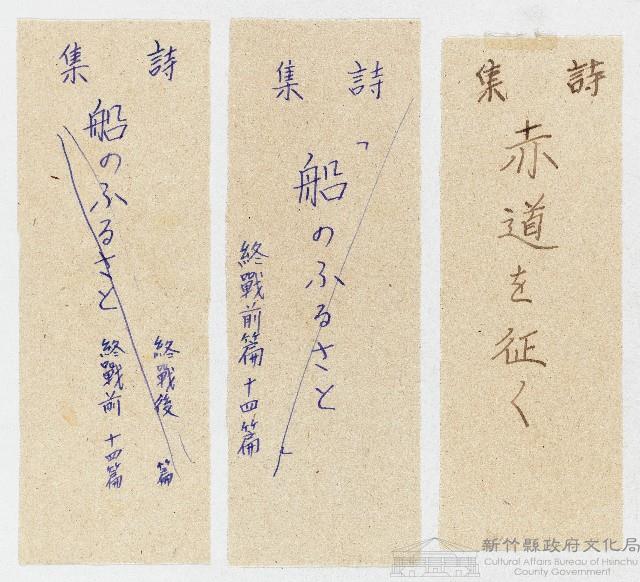 詩集
赤道を征く
詩集
「船のふるさと
終戰前篇十四篇
詩集
船のふるさと
終戰後 篇
終戰前 十四篇
新竹縣政府文化局
Cultural Affairs Bureau of Hsinchu
County Government